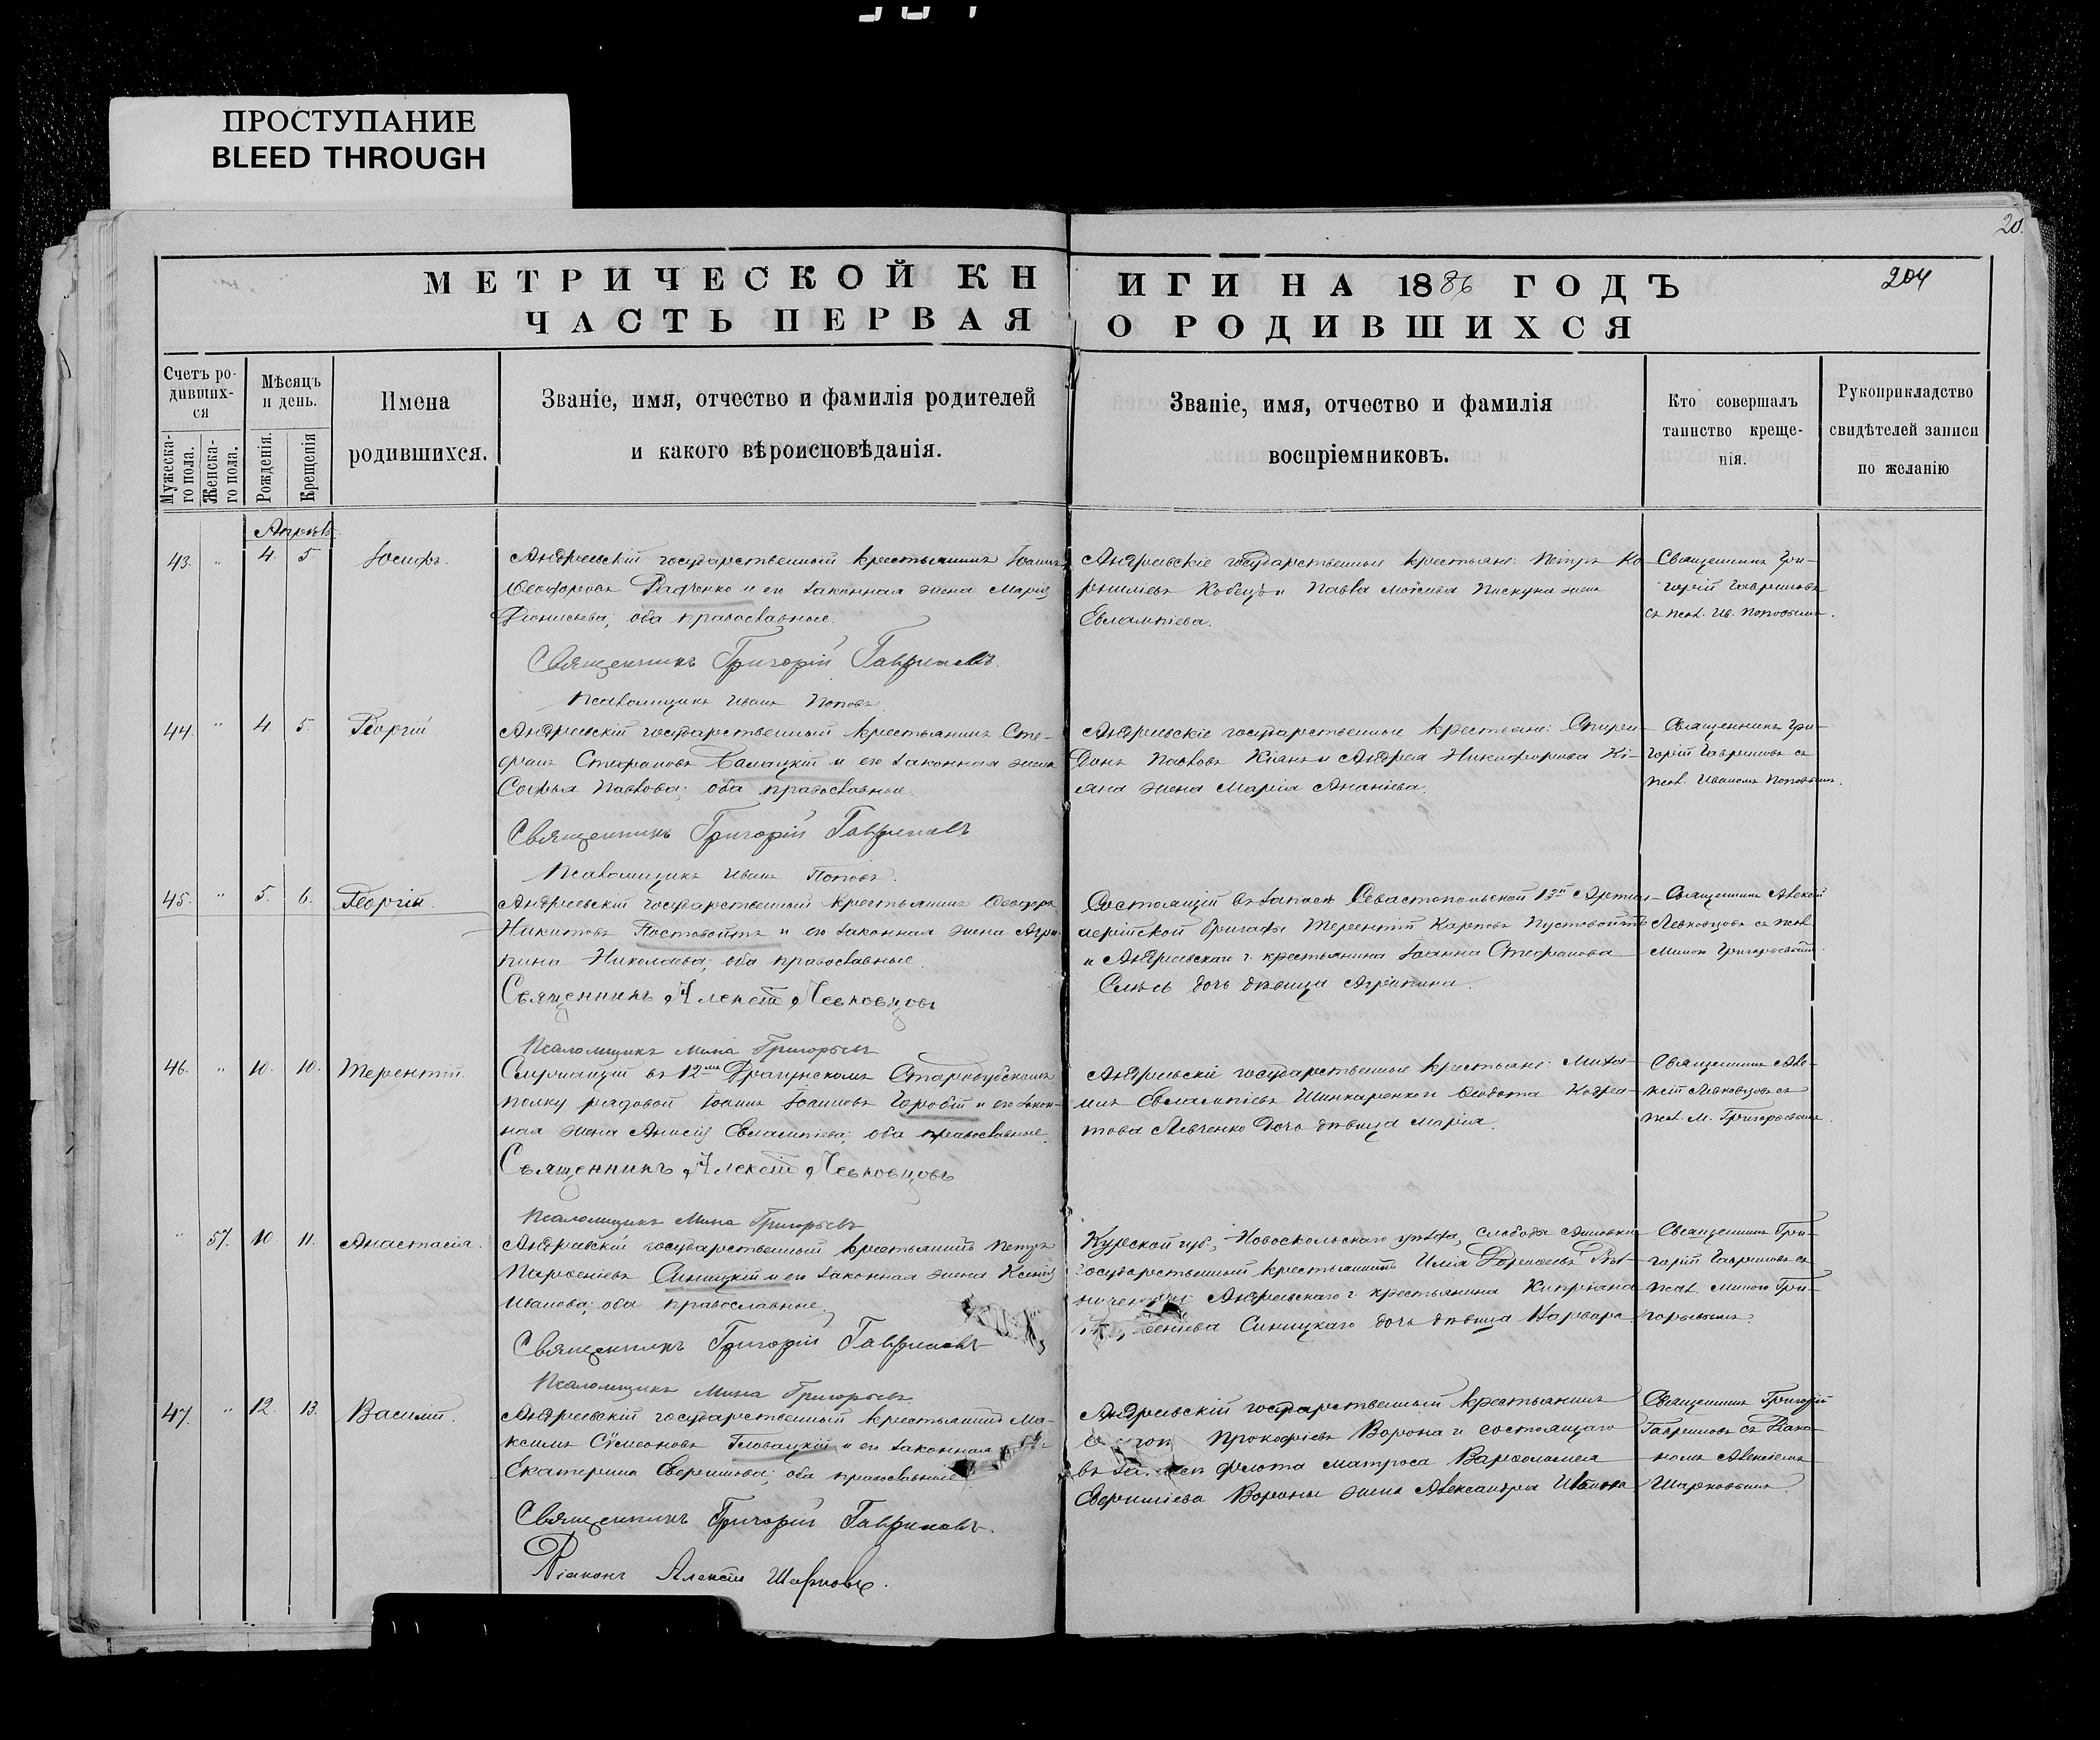 ПРОСТУПАНИЕ
BLEED THROUGH
20
204
МЕТРИЧЕСКОЙ КНИГИ НА 1886 ГОДЪ
ЧАСТЬ ПЕРВАЯ О РОДИВШИХСЯ
Счетъ ро-
дивших-
ся
Мужеска-
го пола.
Женска-
го пола.
Мѣсяцъ
и день.
Рожденія.
Крещенія
Имена
родившихся.
Званіе, имя, отчество и фамилія родителей
и какого вѣроисповѣданія.
Званіе, имя, отчество и фамилія
воспріемниковъ.
Кто совершалъ
таинство креще-
нія.
Рукоприкладство
свидѣтелей записи
по желанію
Апрѣль
43. " 4. 5 Іосифъ.
Андреевскій государственный крестьянинъ Іоаннъ
Ѳеодоровъ Радченко и его законная жена Марія
Діонисьева; оба православные.
Священникъ Григорій Гавриловъ.
Псаломщикъ Иванъ Поповъ.
Андреевскіе государственные крестьяне: Петръ Ко-
рниліевъ Кобецъ и Павла Моісеева Пискуна жена
Евлампіева.
Священникъ Гри-
горій Гавриловъ
съ псал. Ив. Поповымъ.
44. " 4 5. Георгій.
Андреевскій государственный крестьянинъ Сте-
фанъ Стефановъ Балацкій и его законная жена
Софья Павлова; оба православные.
Священникъ Григорій Гавриловъ
Псаломщикъ Иванъ Поповъ.
Андреевскіе государственные крестьяне: Спири-
донъ Павловъ Кіянъ и Андрея Никифорова Кі-
яна жена Марія Ананіева.
Священникъ Гри-
горій Гавриловъ съ
псал. Иваномъ Поповымъ.
45. " 5. 6. Георгій.
Андреевскій государственный крестьянинъ Ѳеодоръ
Никитовъ Пустовойтъ и его законная жена Агри-
пина Николаева; оба православные.
Священникъ Алексѣй Левковцовъ
Псаломщикъ Мина Григорьевъ
Состоящій въ запасѣ Севастопольской 13й Артил-
лерійской бригады Терентій Карповъ Пустовойтъ
и Андреевскаго г. крестьянина Іоанна Стефанова
дочь дѣвица Агрипина.
Священникъ Алексѣй
Левковцовъ съ псал.
Миною Григорьевымъ.
46. " 10. 10. Терентій.
Служащій въ 12мъ Драгунскомъ Стародубскомъ
полку рядовой Іоаннъ Іоанновъ Горобій и его закон-
ная жена Анисія Евлампіева; оба православные.
Священникъ Алексѣй Левковцовъ
Псаломщикъ Мина Григорьевъ
Андреевскіе государственные крестьяне: Миха-
илъ Евлампіевъ Шинкаренко и Ѳеодота Кодра-
това Левченко дочь дѣвица Марія.
Священникъ Але-
ксѣй Левковцовъ съ
псал. М. Григорьевымъ.
" 57. 10 11. Анастасія.
Андреевскій государственный крестьянинъ Петръ
Парѳеніевъ Синицкій и его законная жена Ксенія
Иванова; оба православные.
Священникъ Григорій Гавриловъ
Псаломщикъ Мина Григорьевъ
Курской губ., Новооскольскаго уѣзда, слобода
государственный крестьянинъ Илія
Андреевскаго г. крестьянина Кипріана
Синицкаго дочь дѣвица Варвара
Священникъ Гри-
горій Гавриловъ съ
псал. Миною Гри-
горьевымъ.
47. " 12. 13. Василій.
Андреевскій государственный крестьянинъ Ма-
ксимъ Сѵмеоновъ Головацкій и его законная
Екатерина; оба православные.
Священникъ Григорій Гавриловъ.
Діаконъ Алексѣй Шарповъ.
Андреевскій государственный крестьянинъ
Прокофіевъ Ворона и состоящаго
флота матроса Варѳоломея
Вороны жена Александра Иванова
Священникъ Григорій
Гавриловъ съ Діако-
номъ Алексѣемъ